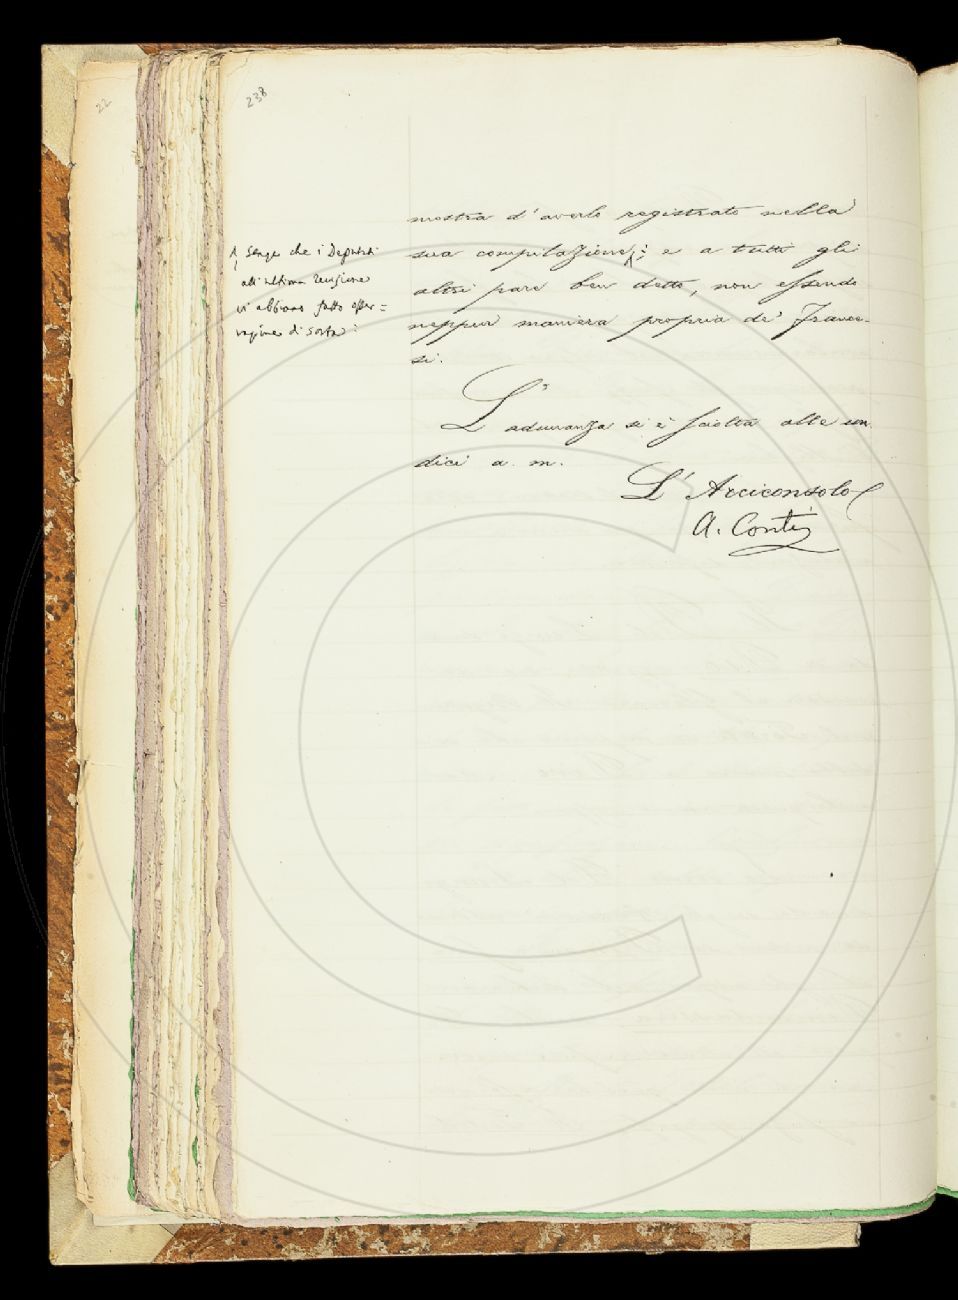 22
238
mostra d'averlo registrato nella
sua compilazione; e a tutti gli
altri pare ben detto, non essendo
neppur maniera propria de' France-
si.
L'adunanza si è sciolta alle un
dici a. m.
L'Arciconsolo
A. Conti
senza che i Deputati
all'ultima revisione
vi abbiano fatto osser=
vazione di sorta: